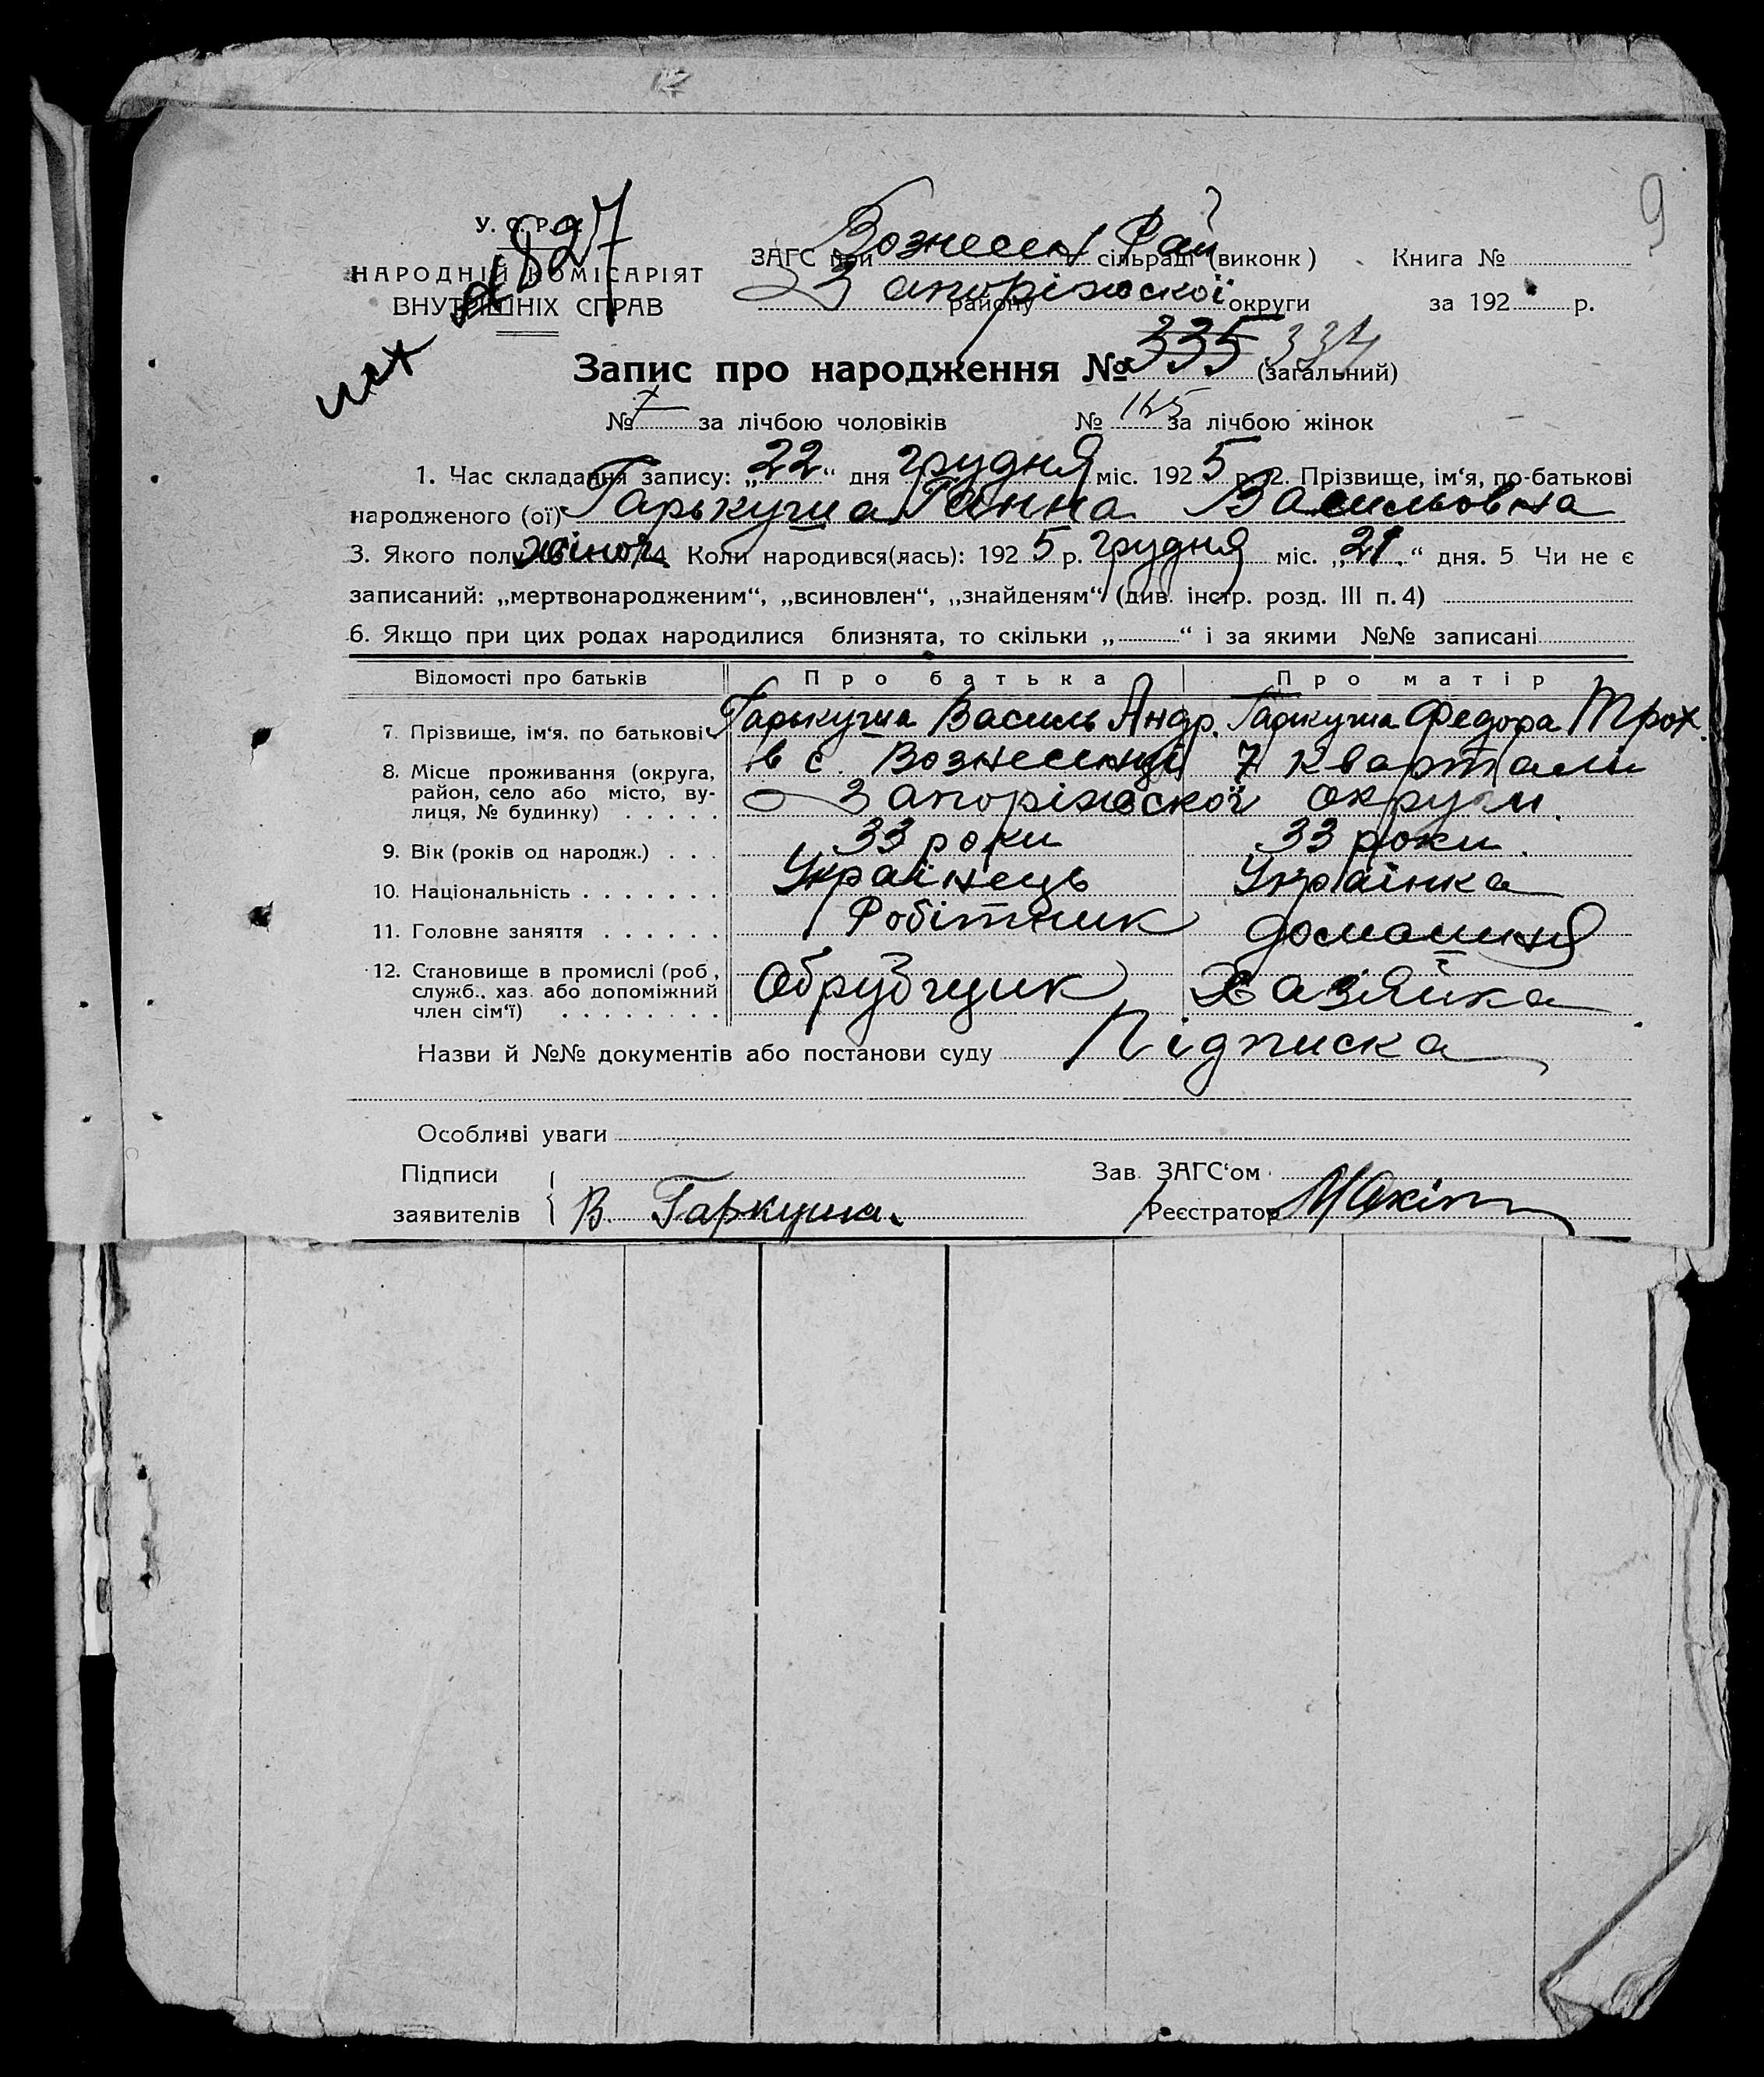 9
У. С. Р. Р.
НАРОДНІЙ КОМІСАРІЯТ
ВНУТРІШНІХ СПРАВ
исх 1827
ЗАГС при Вознесен Рай сільраді (виконк) Книга №
Запоріжської району округи за 192 р.
Запис про народження № 335 334 (загальний)
№ за лічбою чоловіків № 165 за лічбою жінок
1. Час складання запису: „22“ дня грудня міс. 1925 р. 2. Прізвище, ім‘я, по-батькові
народженого (ої) Гарькуша Ганна Васильовна
3. Якого полу жіноч. 4 Коли народився(лась): 1925 р. грудня міс. „21.“ дня. 5 Чи не є
записаний: „мертвонародженим“, „всиновлен“, „знайденям“ (див. інстр. розд. III п. 4)
6. Якщо при цих родах народилися близнята, то скільки „ “ і за якими №№ записані
Відомості про батьків Про батька Про матір
7. Прізвище, ім‘я. по батькові Гарькуша Василь Андр. Гаркуша Федора Трох.
8. Місце проживання (округа, в с. Вознесенці 7 кварталі
район, село або місто, ву-
лиця, № будинку) Запоріжскої округи.
9. Вік (років од народж.) 33 роки 33 роки.
10. Національність Українець Українка
11. Головне заняття Робітник домашня
12. Становище в промислі (роб.,
служб., хаз. або допоміжний Обрубщик Хазяйка
член сім‘ї)
Назви й №№ документів або постанови суду Підписка
Особливі уваги
Підписи Зав. ЗАГС‘ом
заявителів В. Гаркуша. Реєстратор